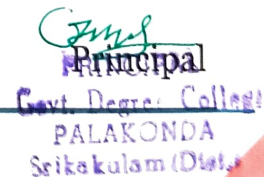 Principal
PRINCIPAL
Govt. Degree College
PALAKONDA
Srikakulam (Dist.